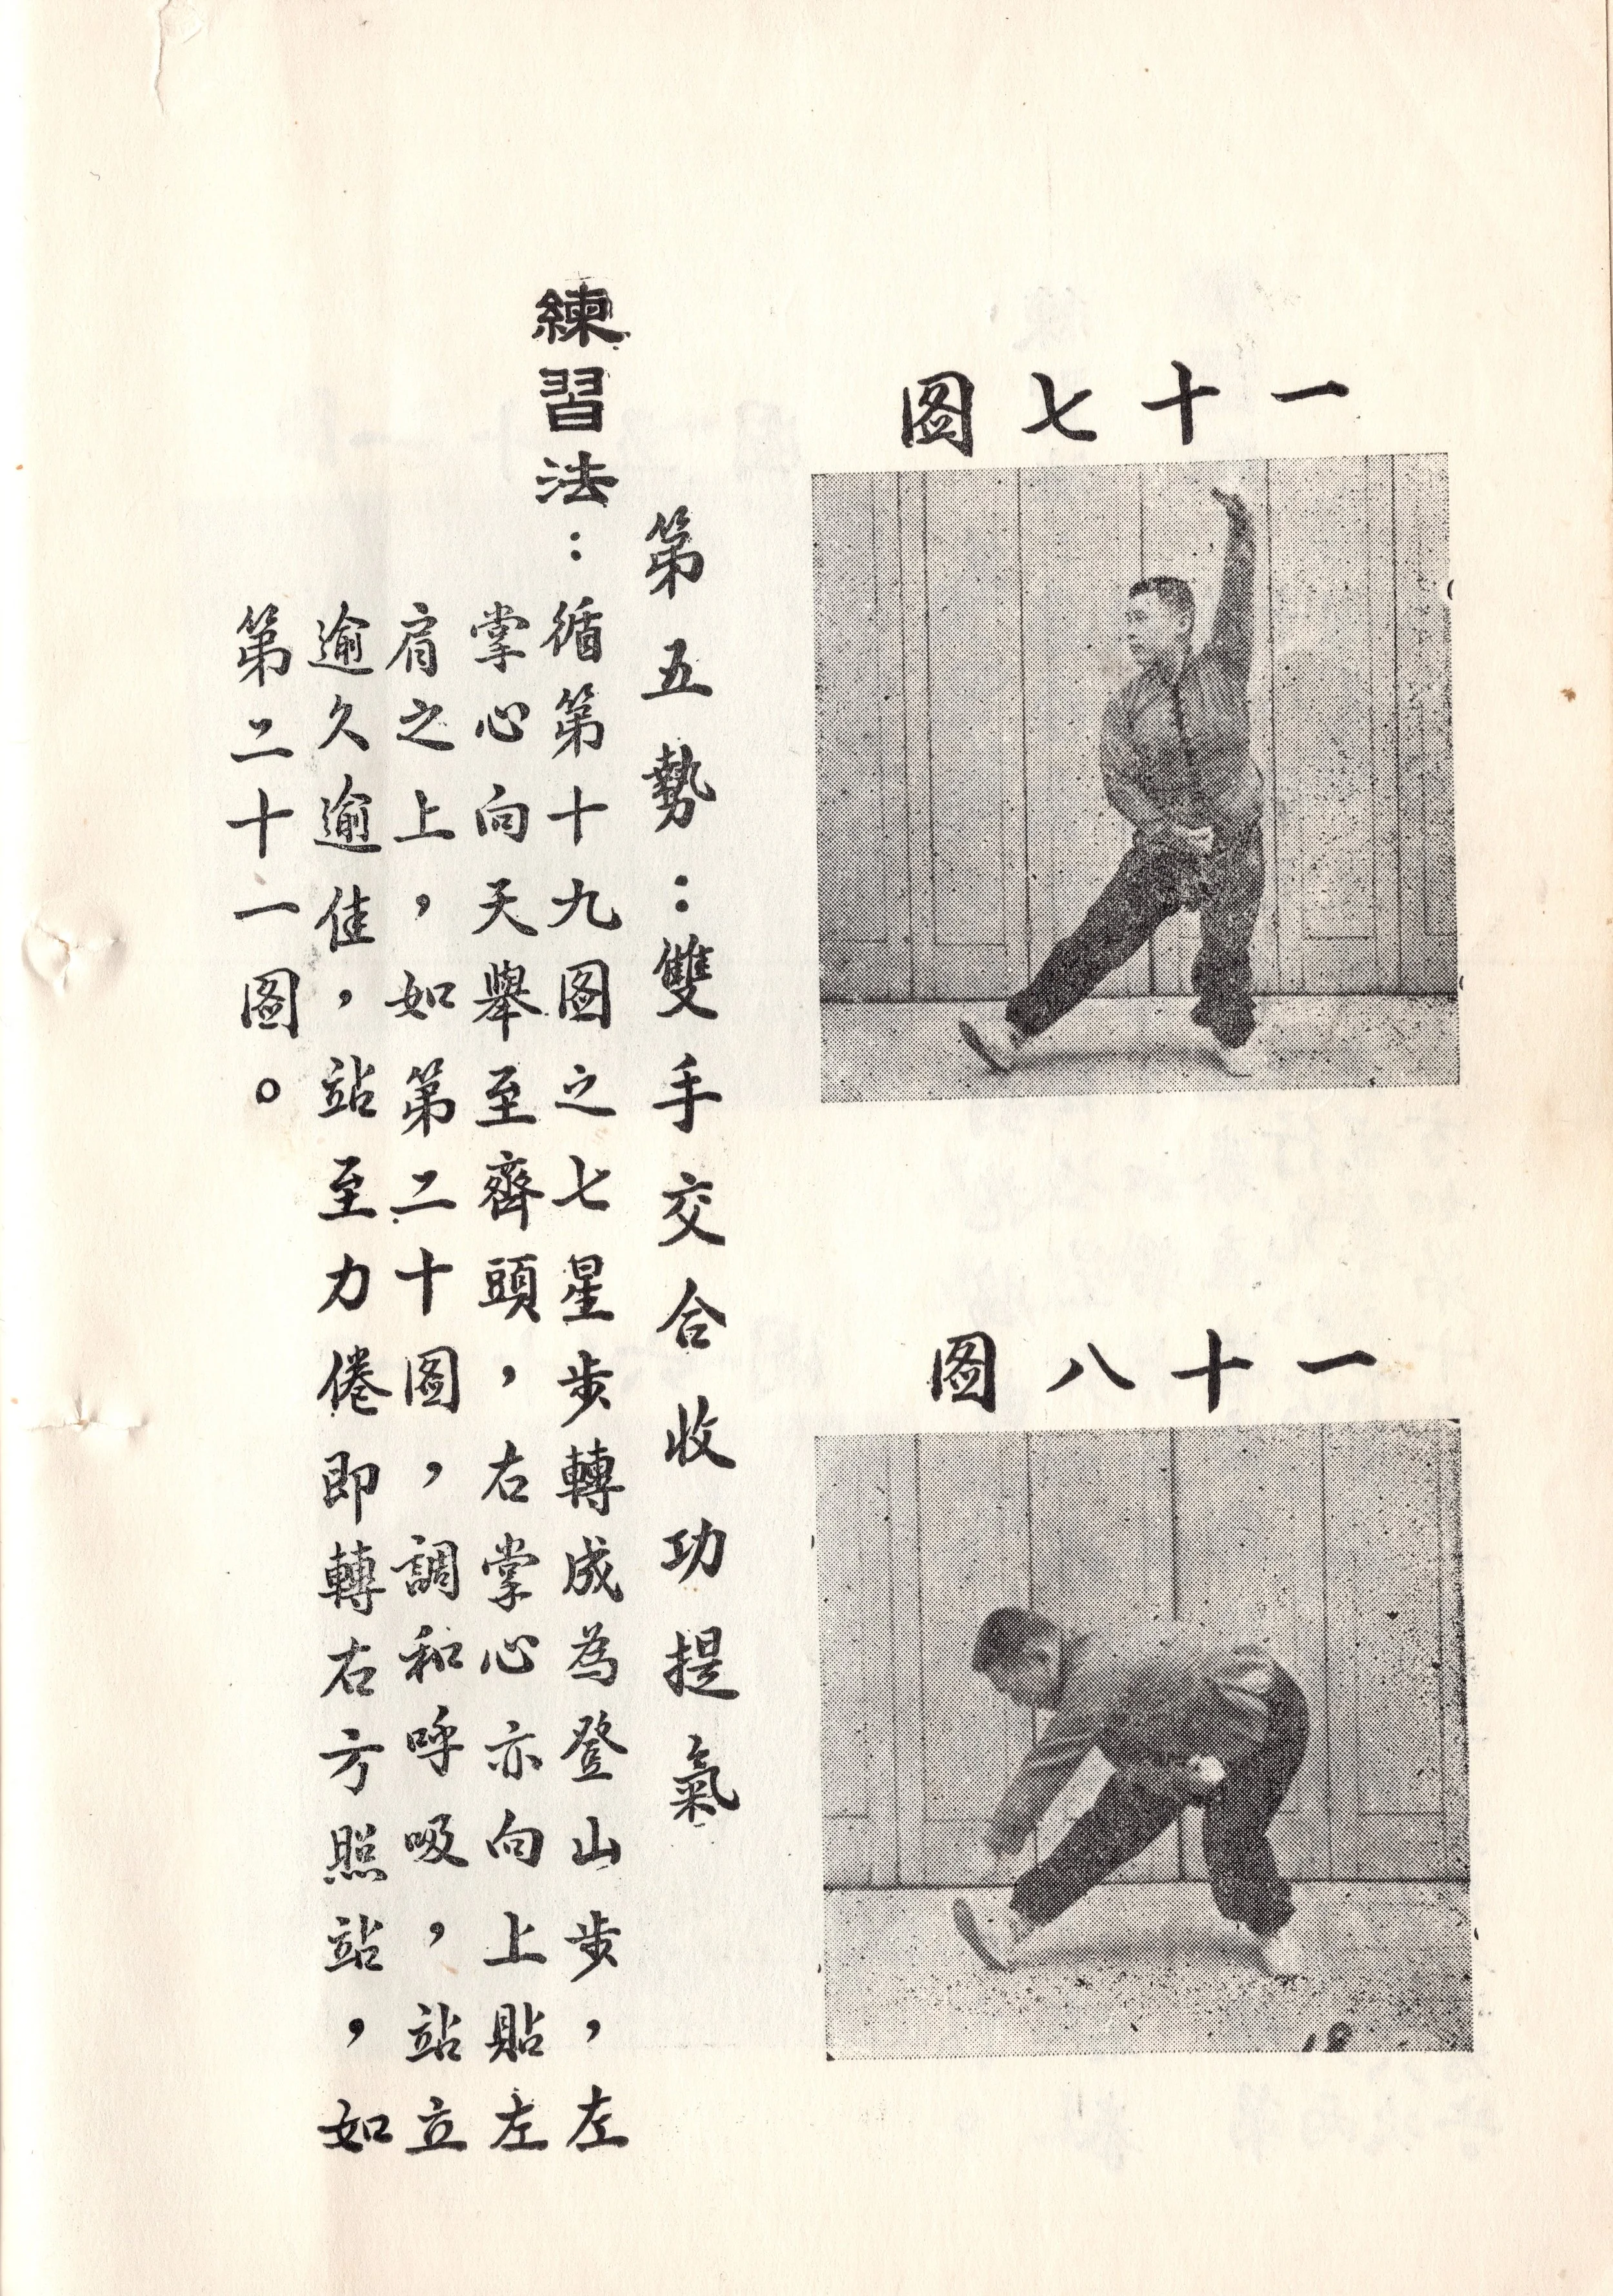 一十七图
一十八图
18
第五勢：雙手交合收功提氣
練習法：循第十九图之七星步轉成為登山步，左
掌心向天舉至齊頭，右掌心亦向上貼左
肩之上，如第二十图，調和呼吸，站立
逾久逾佳，站至力倦即轉右方照站，如
第二十一图。